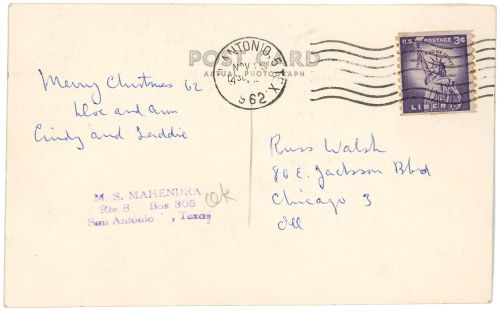 POST CARD
ACTUAL PHOTOGRAPH
ANTONIO, TEX.
NOV
1962
U.S. POSTAGE 3¢
LIBERTY
Merry Christmas 62
and Ann
Cindy and Laddie
M. S. MAHENDRA
Rte 8 Box 305
San Antonio , Texas
OK
Russ Walsh
80 E. Jackson Blvd
Chicago 3
Ill